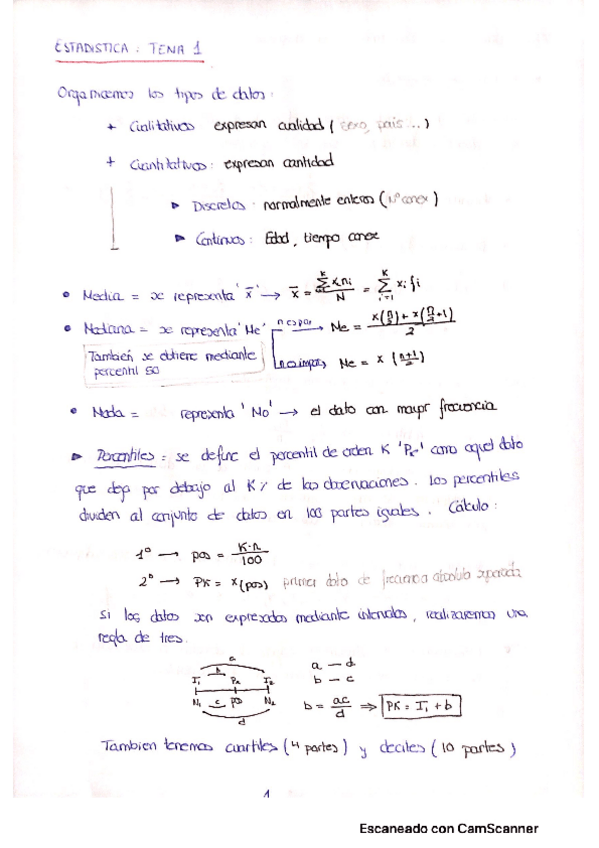 ESTADISTICA : TEMA 1
Organizamos los tipos de datos :
+ Cualitativos expresan cualidad ( sexo, país ... )
+ Cuantitativos : expresan cantidad
► Discretos · normalmente enteros ( Nº conex )
► Continuos : Edad , tiempo conex
• Media = se representa ' x̄ ' → x̄ = Σ xᵢnᵢ / N = Σ xᵢ fᵢ
• Mediana = se representa ' Me ' n es par → Me = x(n/2) + x(n/2+1) / 2
También se obtiene mediante percentil 50
n es impar → Me = x (n+1/2)
• Moda = representa ' Mo ' → el dato con mayor frecuencia
► Percentiles : se define el percentil de orden K ' Pk ' como aquel dato
que deja por debajo al K % de las observaciones . Los percentiles
dividen al conjunto de datos en 100 partes iguales . Cálculo :
1º → pos = K·n / 100
2º → PK = x(pos) primer dato de frecuencia absoluta
Si los datos son expresados mediante intervalos , realizaremos una
regla de tres.
a
b
I₁ Pk I₂
N₁ c pos N₂
d
a — d
b — c
b = ac / d ⇒ PK = I₁ + b
Tambien tenemos cuartiles ( 4 partes ) y deciles ( 10 partes )
1
Escaneado con CamScanner